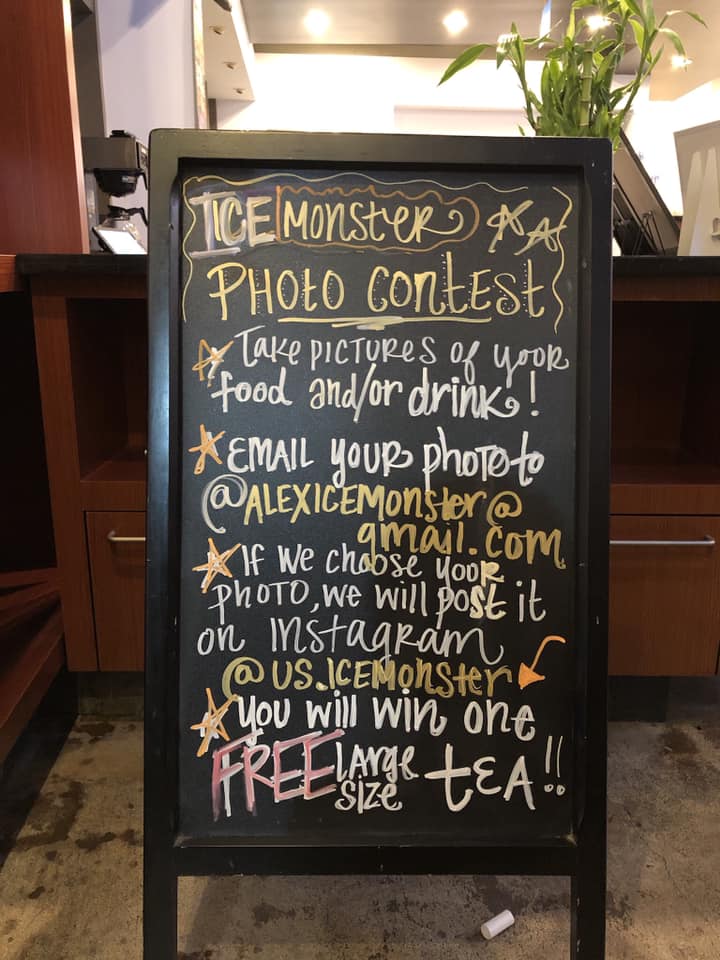 ICE MONSTER
PHOTO CONTEST
TAKE PICTURES OF YOUR
food and/or drink!
EMAIL YOUR PHOTO to
@ALEXICEMONSTER@
gmail.com
If We choose YOUR
PHOTO, we will post it
on INSTAGRAM
@US.ICEMONSTER
You will win one
FREE LARGE
SIZE tEA!!